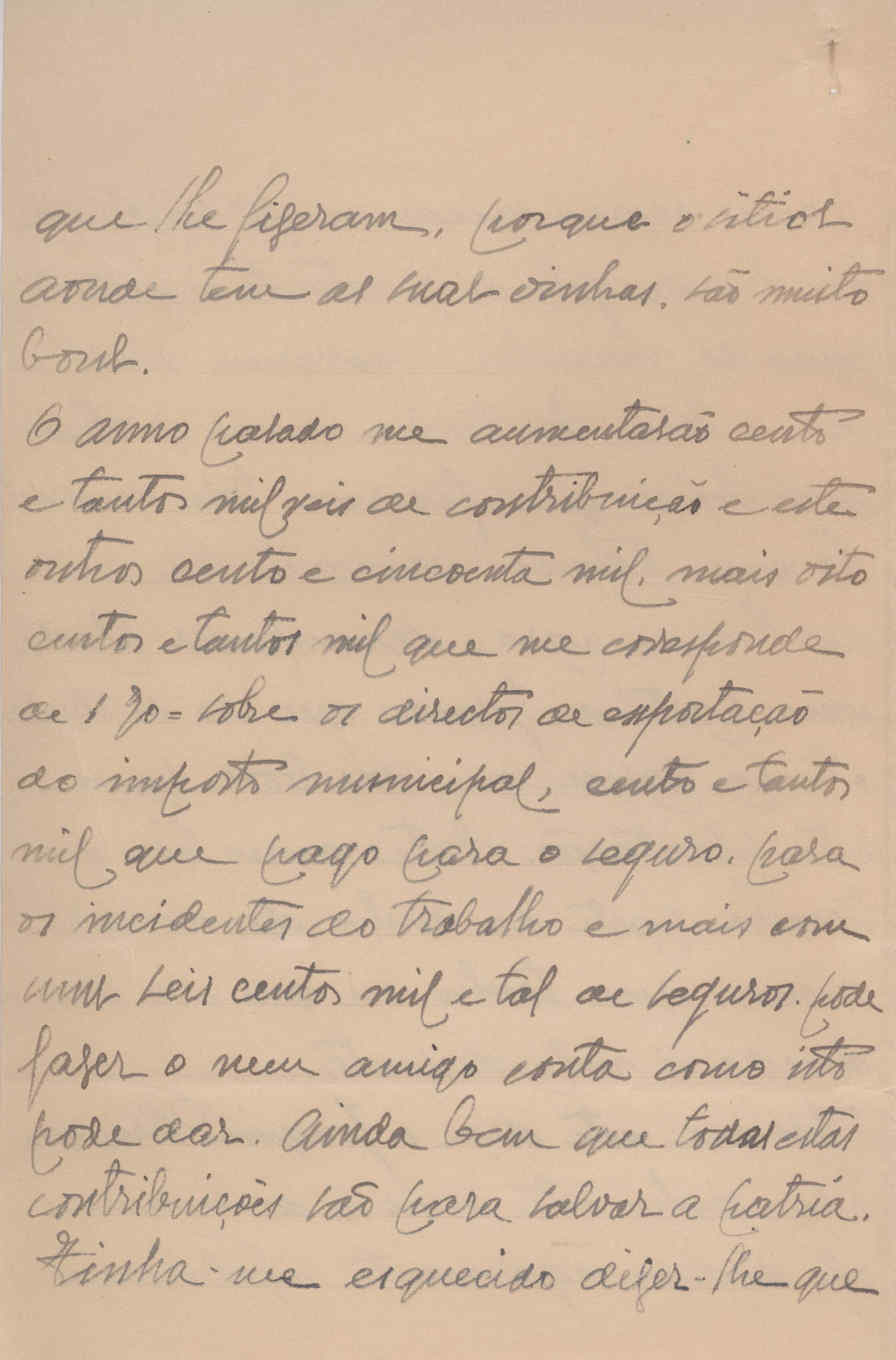 que lhe fizeram, porque os sitios
aonde tem as suas vinhas, são muito
bons.
O anno pasado me aumentarão cento
e tantos mil reis de contribuição e este
outros cento e cincoenta mil, mais oito
centos e tantos mil que me coresponde
de 1 % = sobre os directos de exportação
do imposto municipal, cento e tantos
mil que pago para o seguro, para
os incidentes do trabalho e mais com
uns seis centos mil e tal de seguros. pode
fazer o meu amigo conta como isto
pode dar. Ainda bem que todas estas
contribuições são para salvar a patria.
Tinha-me esquecido dizer-lhe que